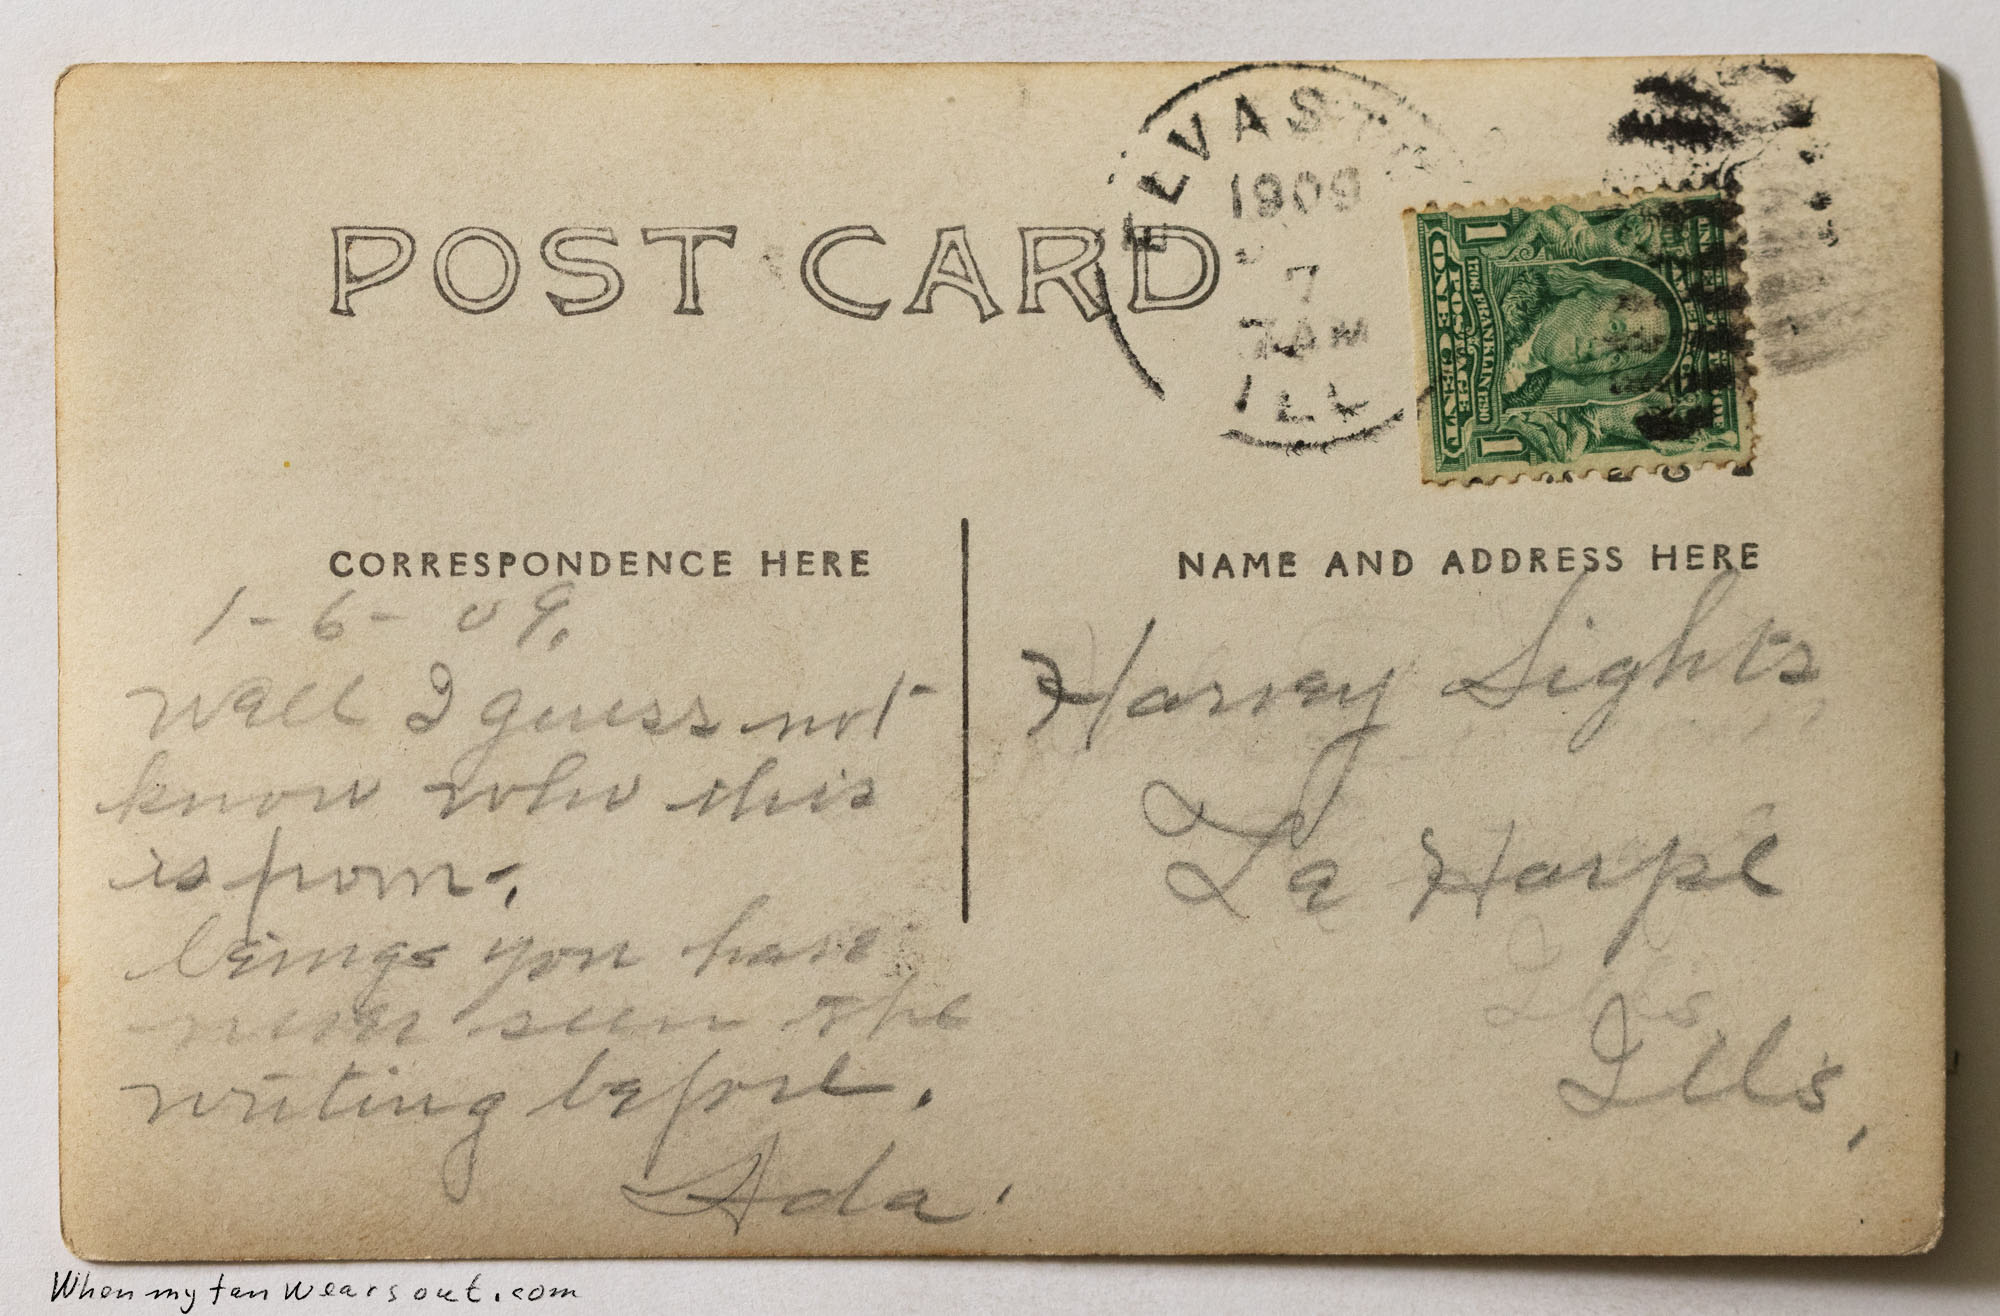 ELVASTON
1909
7
7 AM
ILL
POST CARD
1
ONE CENT
POSTAGE
FRANKLIN 1790
1
CORRESPONDENCE HERE
NAME AND ADDRESS HERE
1-6-09.
Well I guess not
know who this
is from.
beings you have
never seen the
writing before.
Ada.
Harvey Lights
La Harpe
Ills.
When my tan wears out.com